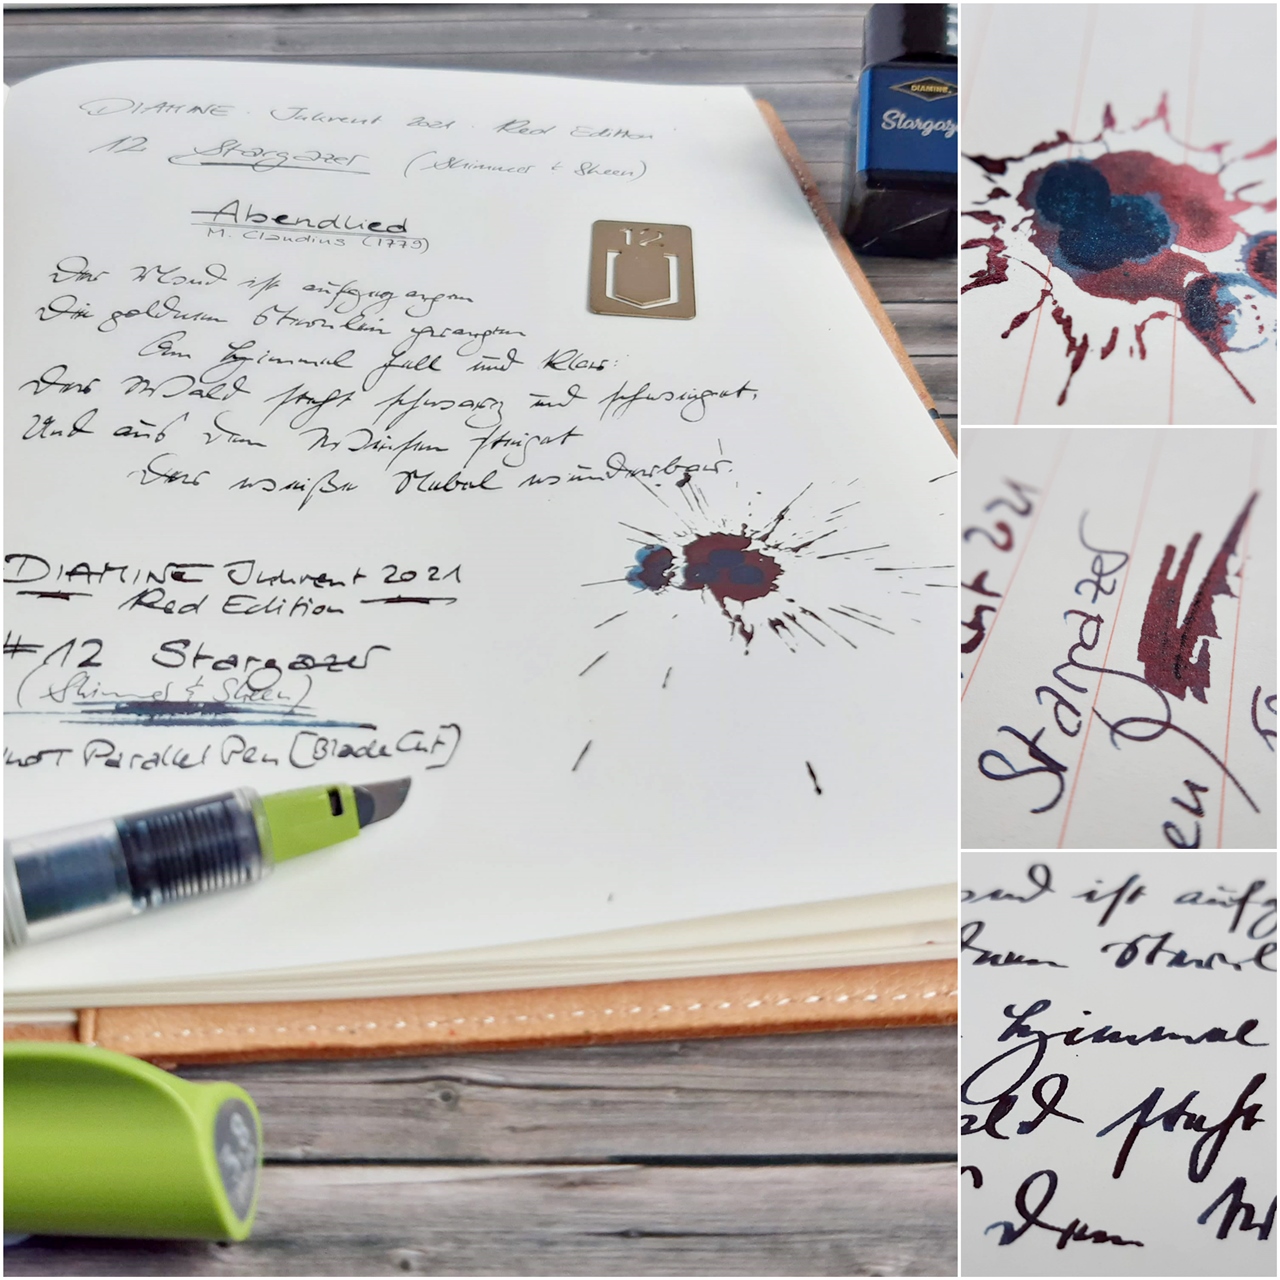 DIAMINE. Inkvent 2021. Red Edition
12 Stargazer (Shimmer + Sheen)
Abendlied
M. Claudius (1779)
Der Mond ist aufgegangen
Die goldnen Sternlein prangen
Am Himmel hell und klar:
Der Wald steht schwarz und schweiget,
Und aus den Wiesen steiget
Der weiße Nebel wunderbar.
DIAMINE Inkvent 2021
Red Edition
#12 Stargazer
(Shimmer & Sheen)
Parallel Pen [Blade Cut]
12
DIAMINE
Stargaz
2021
Stargazer
en
ist aufg
Himmel
ald steht
den